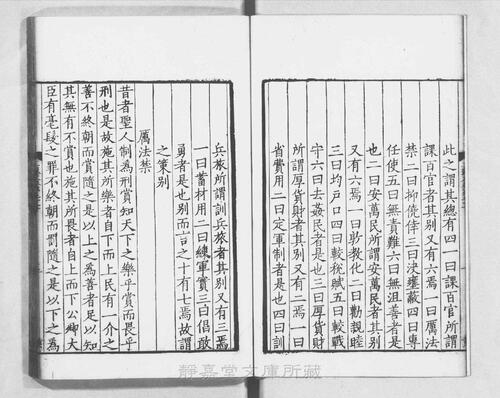 此之謂其總有四一曰課百官所謂
課百官者其別又有六焉一曰厲法
禁二曰抑僥倖三曰決壅蔽四曰專
任使五曰無責難六曰無沮善者是
也二曰安萬民所謂安萬民者其別
又有六焉一曰敦教化二曰勸親睦
三曰均戶口四曰較稅賦五曰教戰
守六曰去姦民者是也三曰厚貨財
所謂厚貨財者其別又有二焉一曰
省費用二曰定軍制者是也四曰訓
兵旅所謂訓兵旅者其別又有三焉
一曰蓄材用二曰練軍實三曰倡敢
勇者是也別而言之十有七焉故謂
之策別
厲法禁
昔者聖人制為刑賞知天下之樂乎賞而畏乎
刑也是故施其所樂者自下而上民有一介之
善不終朝而賞隨之是以上之為善者足以知
其無有不賞也施其所畏者自上而下公卿大
臣有毫髮之罪不終朝而罰隨之是以下之為
靜嘉堂文庫所藏